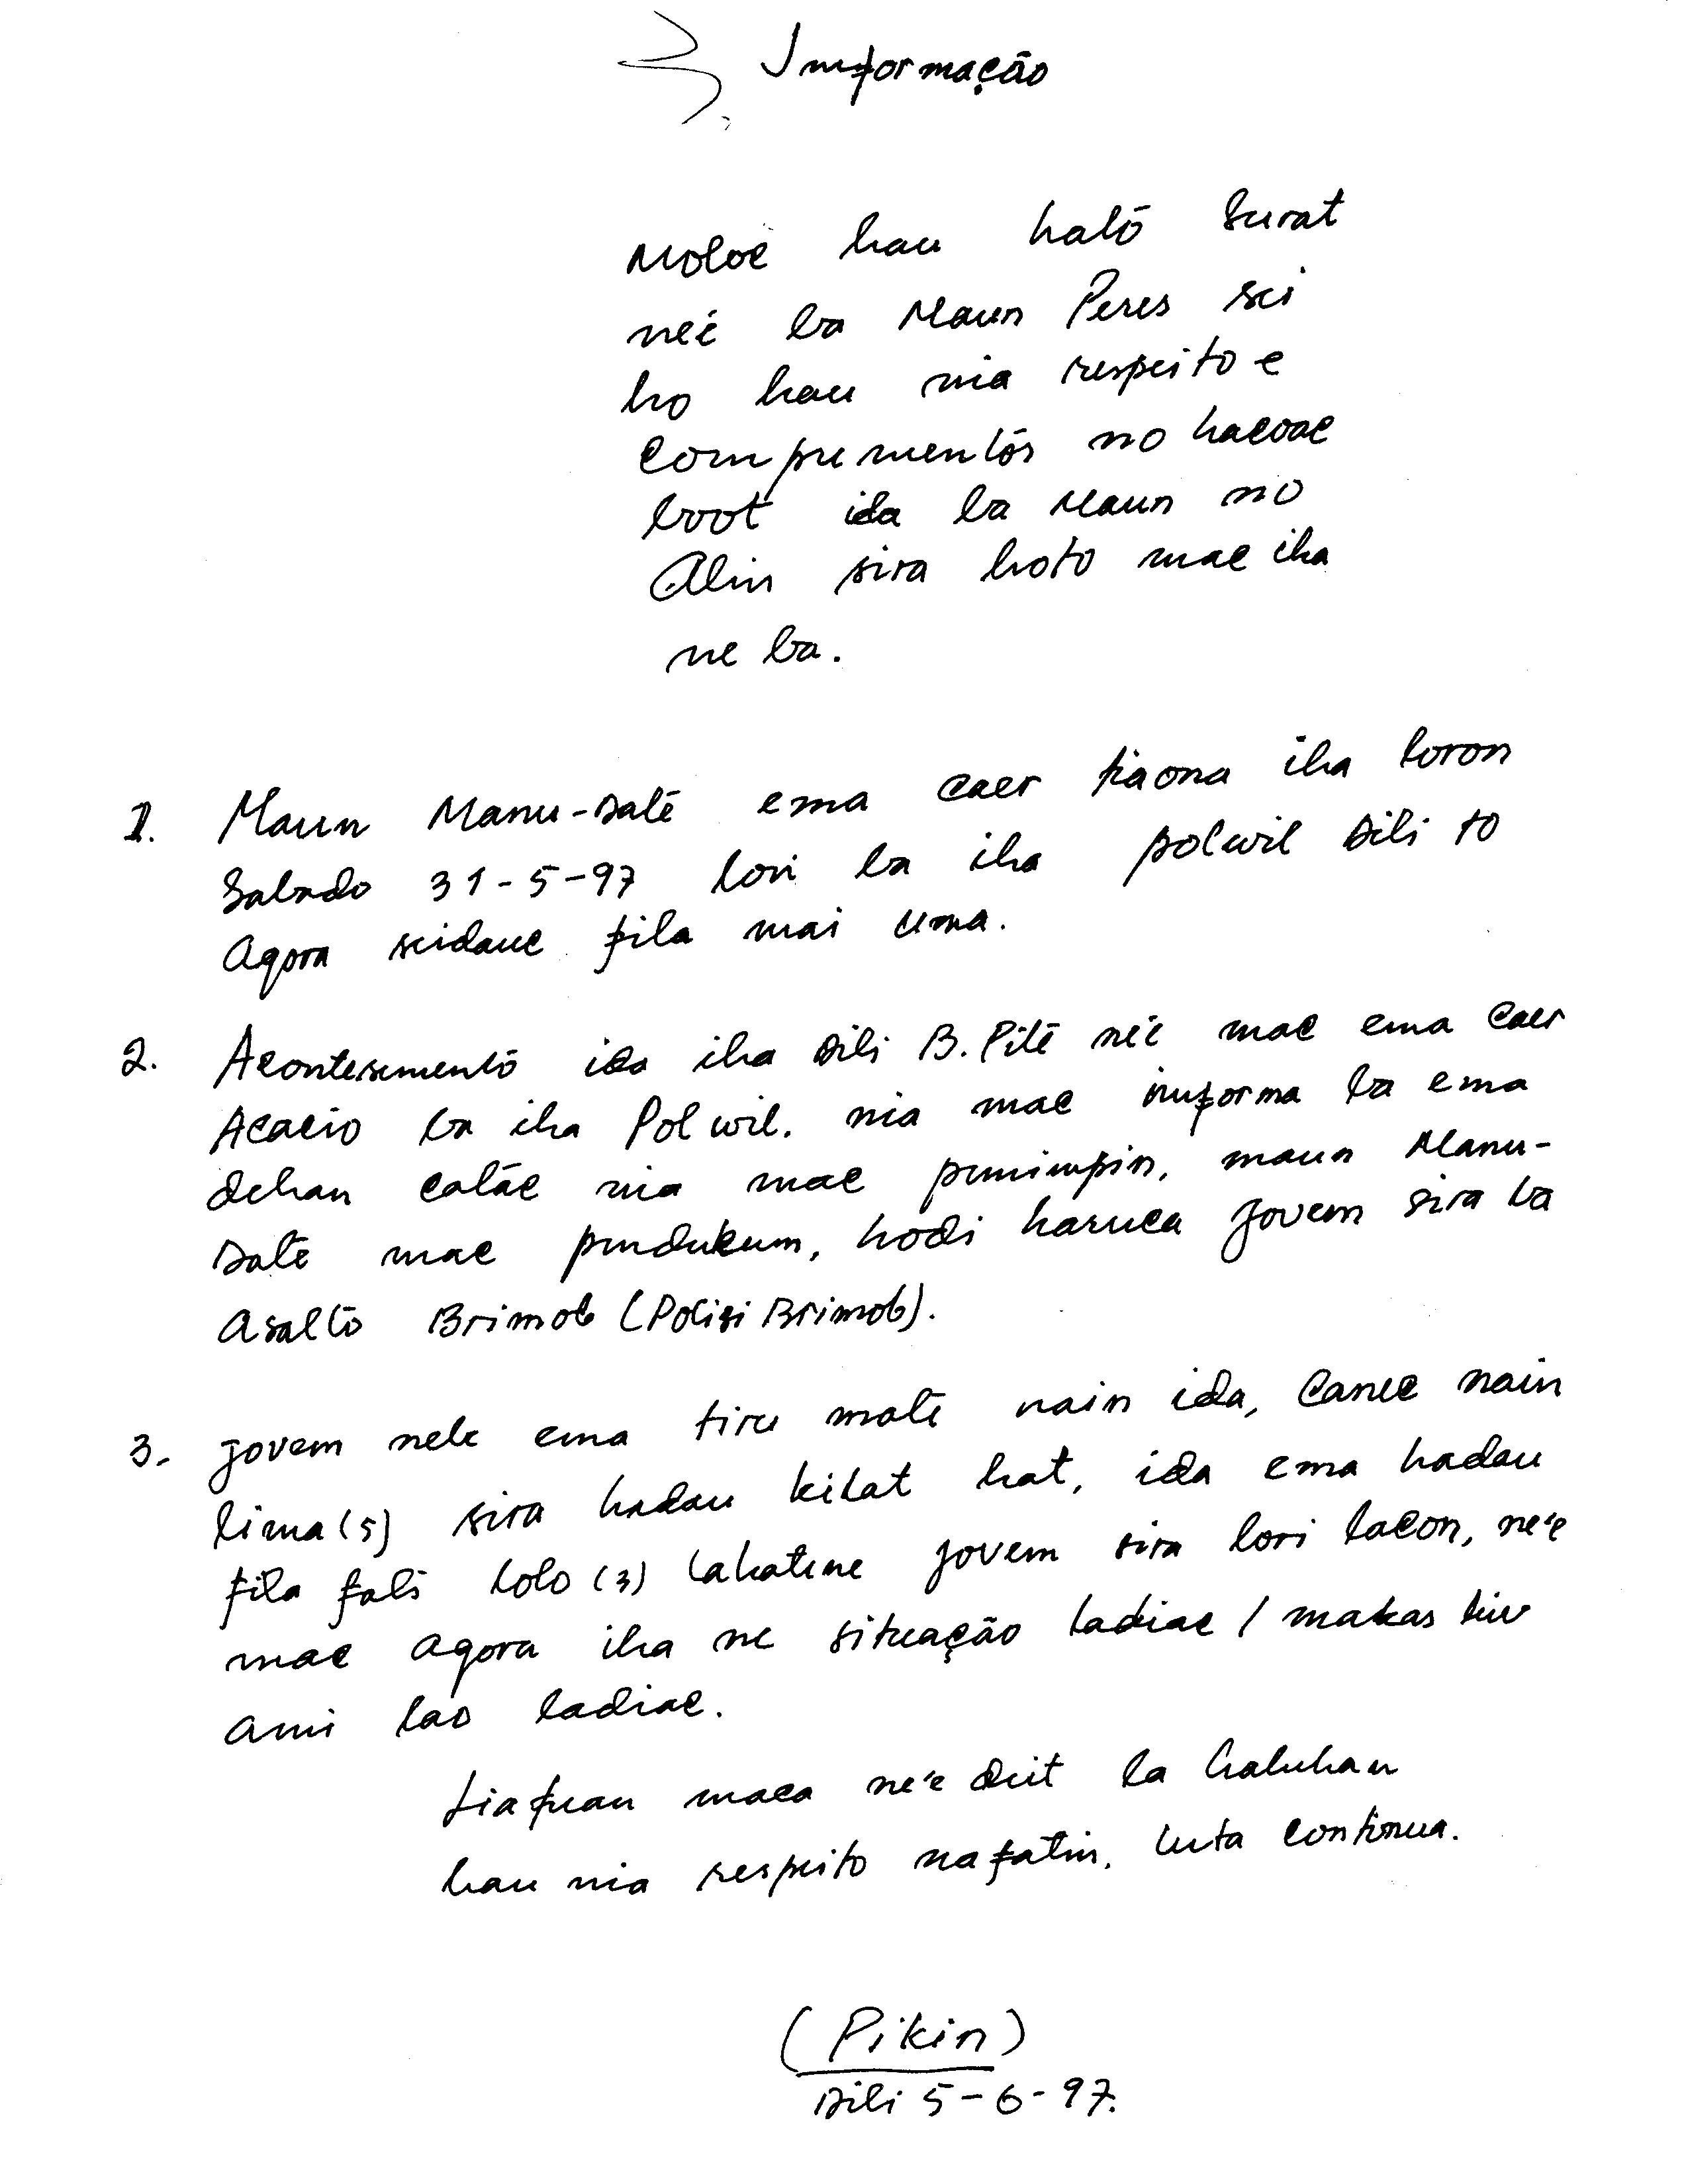 Imformação
Moloc hau ható Surat
neé ba Maun Peres sei
ho hau nia respeito e
comprementós no hacoac
boot ida ba Maun no
Alin sira hoto mac iha
ne ba.
1. Maun Manu-Daté ema caer tiaona iha loron
Sabado 31-5-97 lori ba iha polwil Dili to
Agora seidauc fila mai uma.
2. Acontesimentó ida iha Dili B. Pité neé mac ema caer
Acacio ba iha Polwil. nia mac imforma ba ema
dehan catác nia mac pimimpin, maun Manu-
Daté mac pendukum, hodi haruca jovem sira ba
Asaltó Brimob (Polisi Brimob).
3. jovem nebe ema tiru maté nain ida, canec nain
lima (5) sira hadau kilat hat, ida ema hadau
fila fali tolo (3) lahatene jovem sira lori lacon, ne'e
mac agora iha ne situação ladiac / makas liu
ami lao ladiac.
Liafuan maca ne'e deit la haluhan
hau nia respeito nafatin. Luta continua.
(Pikin)
Dili 5-6-97.